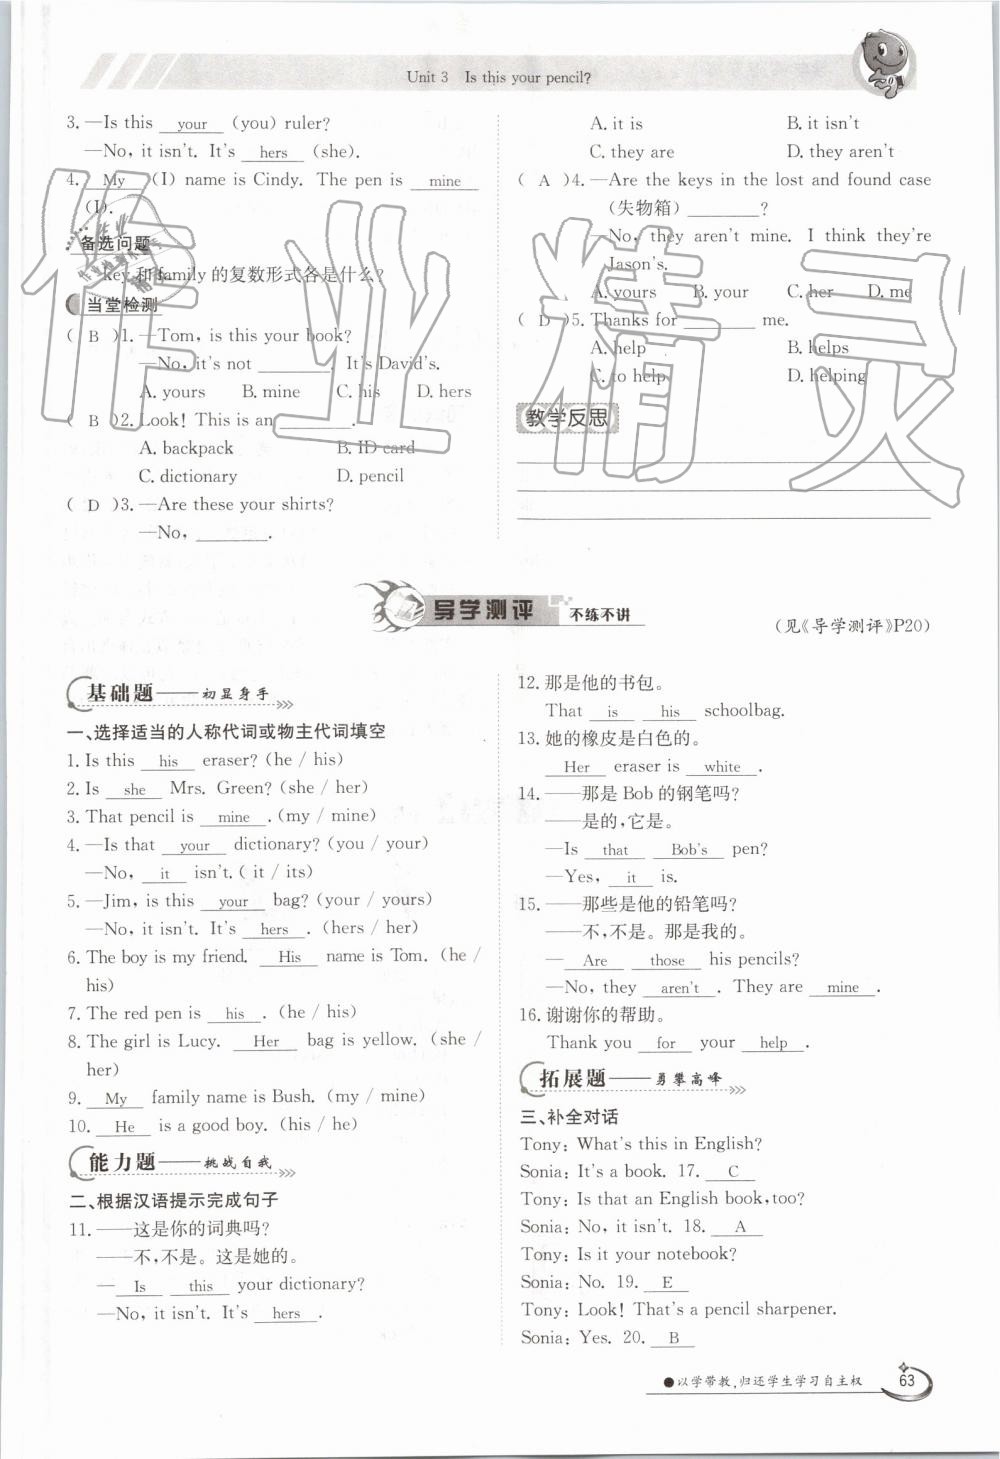 Unit 3 Is this your pencil?
3. —Is this your (you) ruler?
—No, it isn't. It's hers (she).
4. My (I) name is Cindy. The pen is mine
(I).
备选问题
key 和 family 的复数形式各是什么?
当堂检测
( B )1. —Tom, is this your book?
—No, it's not ________. It's David's.
A. yours B. mine C. his D. hers
( B )2. Look! This is an ________.
A. backpack B. ID card
C. dictionary D. pencil
( D )3. —Are these your shirts?
—No, ________.
A. it is B. it isn't
C. they are D. they aren't
( A )4. —Are the keys in the lost and found case
(失物箱) ________?
—No, they aren't mine. I think they're
Jason's.
A. yours B. your C. her D. me
( D )5. Thanks for ________ me.
A. help B. helps
C. to help D. helping
教学反思
作业精灵
导学测评 不练不讲
(见《导学测评》P20)
基础题——初显身手
一、选择适当的人称代词或物主代词填空
1. Is this his eraser? (he / his)
2. Is she Mrs. Green? (she / her)
3. That pencil is mine . (my / mine)
4. —Is that your dictionary? (you / your)
—No, it isn't. ( it / its)
5. —Jim, is this your bag? (your / yours)
—No, it isn't. It's hers . (hers / her)
6. The boy is my friend. His name is Tom. (he /
his)
7. The red pen is his . (he / his)
8. The girl is Lucy. Her bag is yellow. (she /
her)
9. My family name is Bush. (my / mine)
10. He is a good boy. (his / he)
能力题——挑战自我
二、根据汉语提示完成句子
11. ——这是你的词典吗?
——不,不是。这是她的。
— Is this your dictionary?
—No, it isn't. It's hers .
12. 那是他的书包。
That is his schoolbag.
13. 她的橡皮是白色的。
Her eraser is white .
14. ——那是 Bob 的钢笔吗?
——是的,它是。
—Is that Bob's pen?
—Yes, it is.
15. ——那些是他的铅笔吗?
——不,不是。那是我的。
— Are those his pencils?
—No, they aren't . They are mine .
16. 谢谢你的帮助。
Thank you for your help .
拓展题——勇攀高峰
三、补全对话
Tony: What's this in English?
Sonia: It's a book. 17. C
Tony: Is that an English book, too?
Sonia: No, it isn't. 18. A
Tony: Is it your notebook?
Sonia: No. 19. E
Tony: Look! That's a pencil sharpener.
Sonia: Yes. 20. B
●以学带教,归还学生学习自主权 63